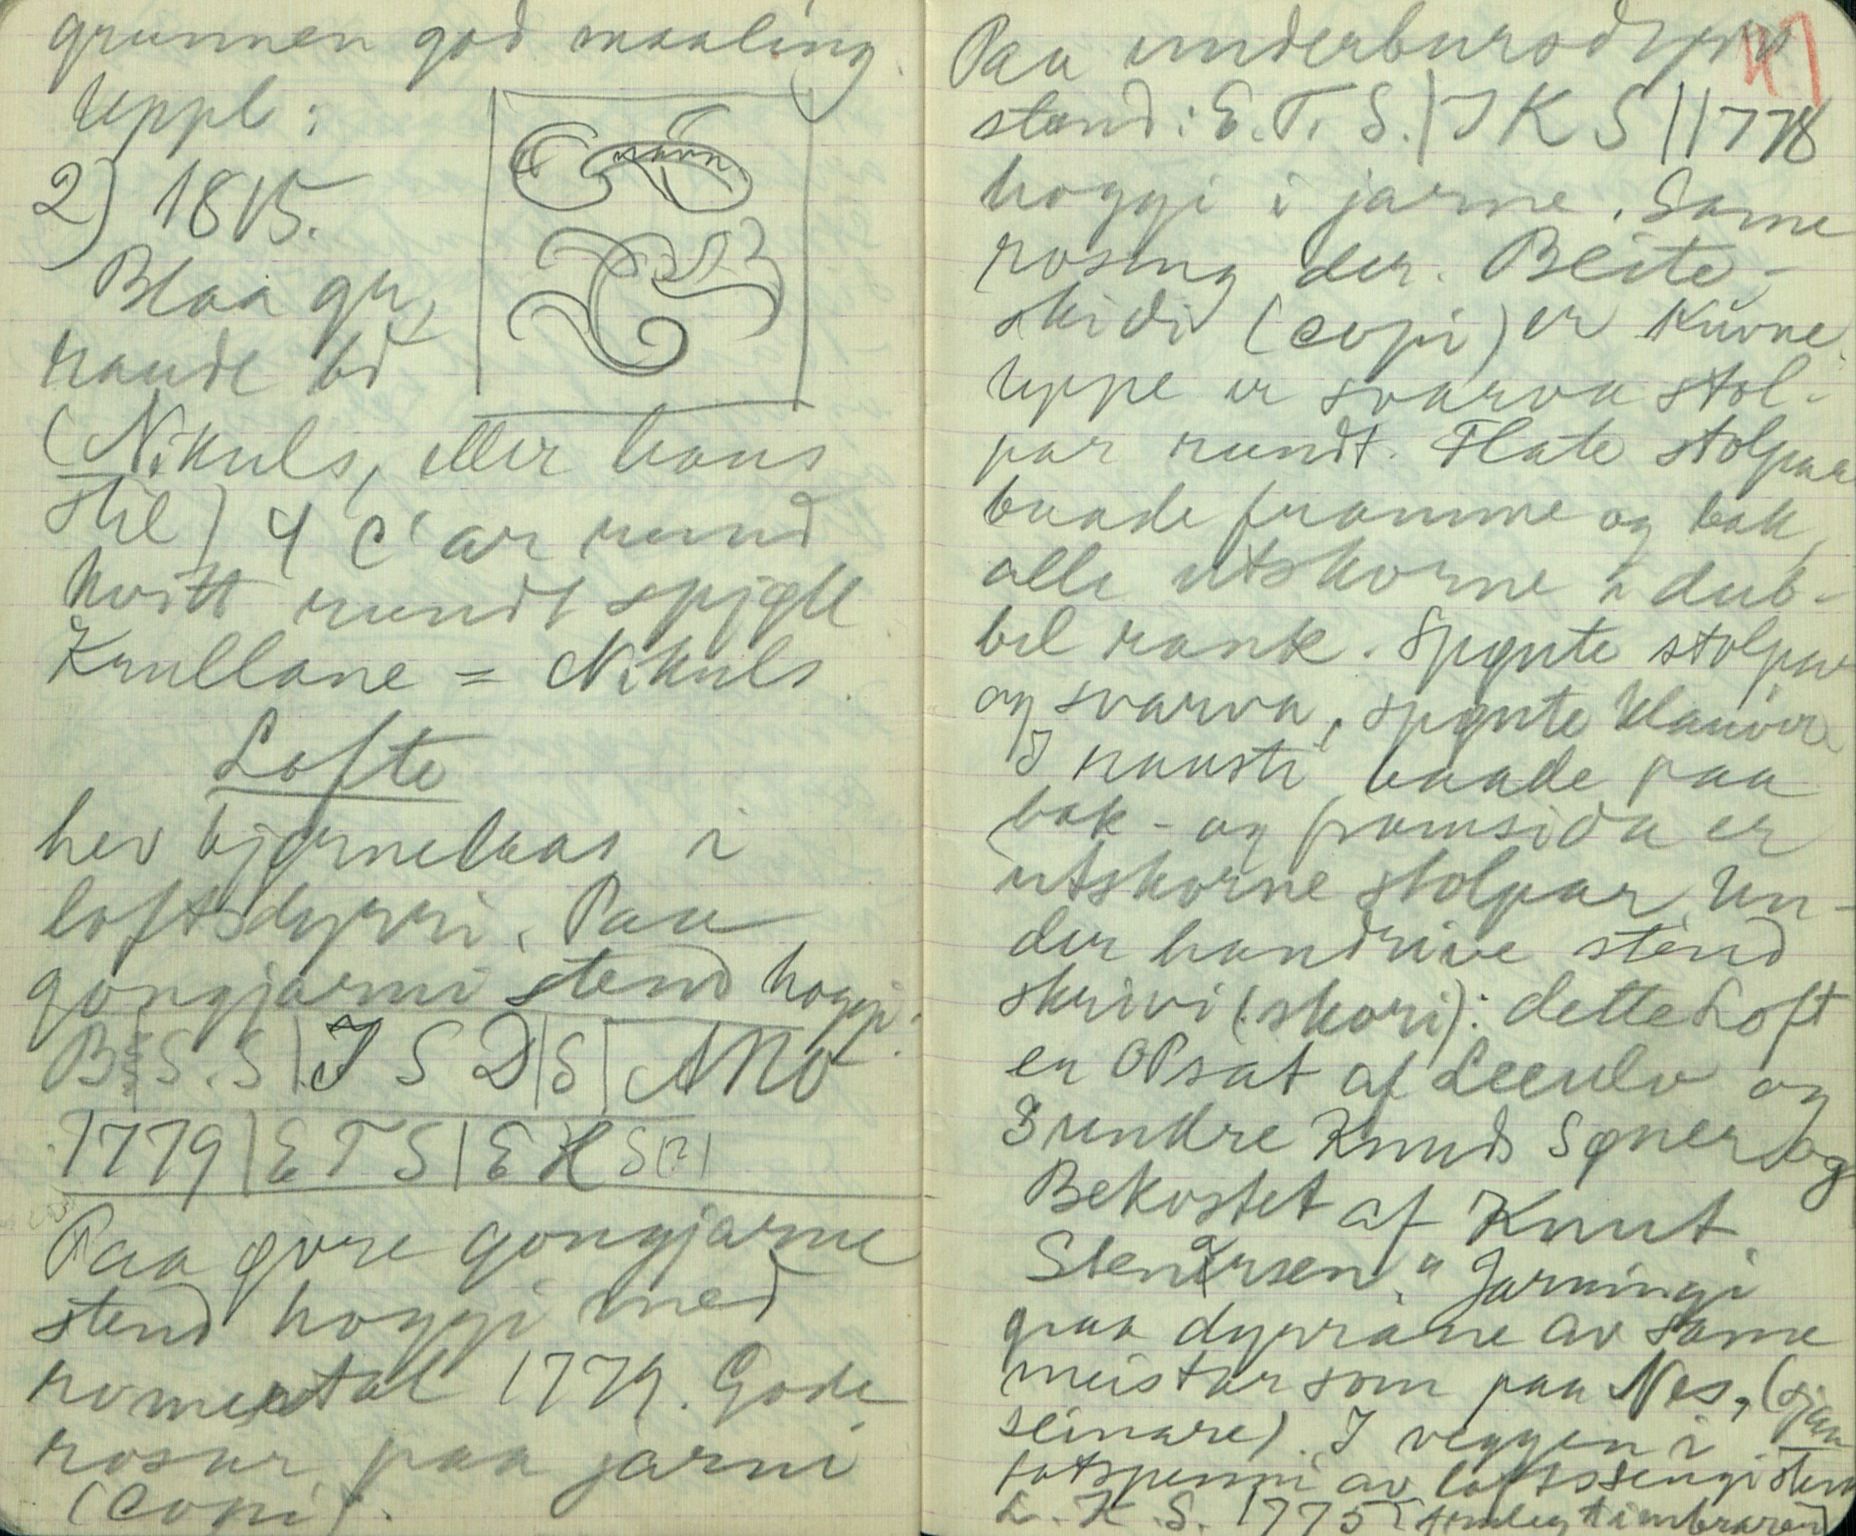 grunnen god maaling.
Uppl:
2) 1815.
Blaa gr,
raude bd
(Nikuls, eller hans
stil) 4 C'ar rund
kvitt rundt spjgll
Krullane = Nikuls.
Lofte
hev bjørnelaas i
loftsdyrri. Paa
gongjarni stend hoggi:
B S. S | I S D | S | ANO
1779 | E T S | E K S (?) |
Paa øvre gongjarne
stend hoggi med
romertal 1779. Gode
rosur paa jarni
(copi).
47
Paa underbursdyrri
stend: E. T. S. | I K S | 1778
hoggi i jarne. Same
rosing der. Beite-
skidi (copi) er Kuvne.
Uppe er svarva stol-
par rundt. Flate stolpar
baade framme og bak,
alle utskorne i dub-
bel rank. Spgnte stolpar
og svarva, spgnte klauvir
I nausti baade paa
bak- og framsida er
utskorne stolpar. Un-
der handrive stend
skrivi (skori): dette Loft
er OPsat af Leeulv og
Gundre Knuds Sønner og
Bekostet af Knut
Stenersen." Jarningi
paa dyrrane av same
meistar som paa Nes, (sjaa
seinare). I veggen i
fotspenni av loftssengi stend
L. K. S. 1775